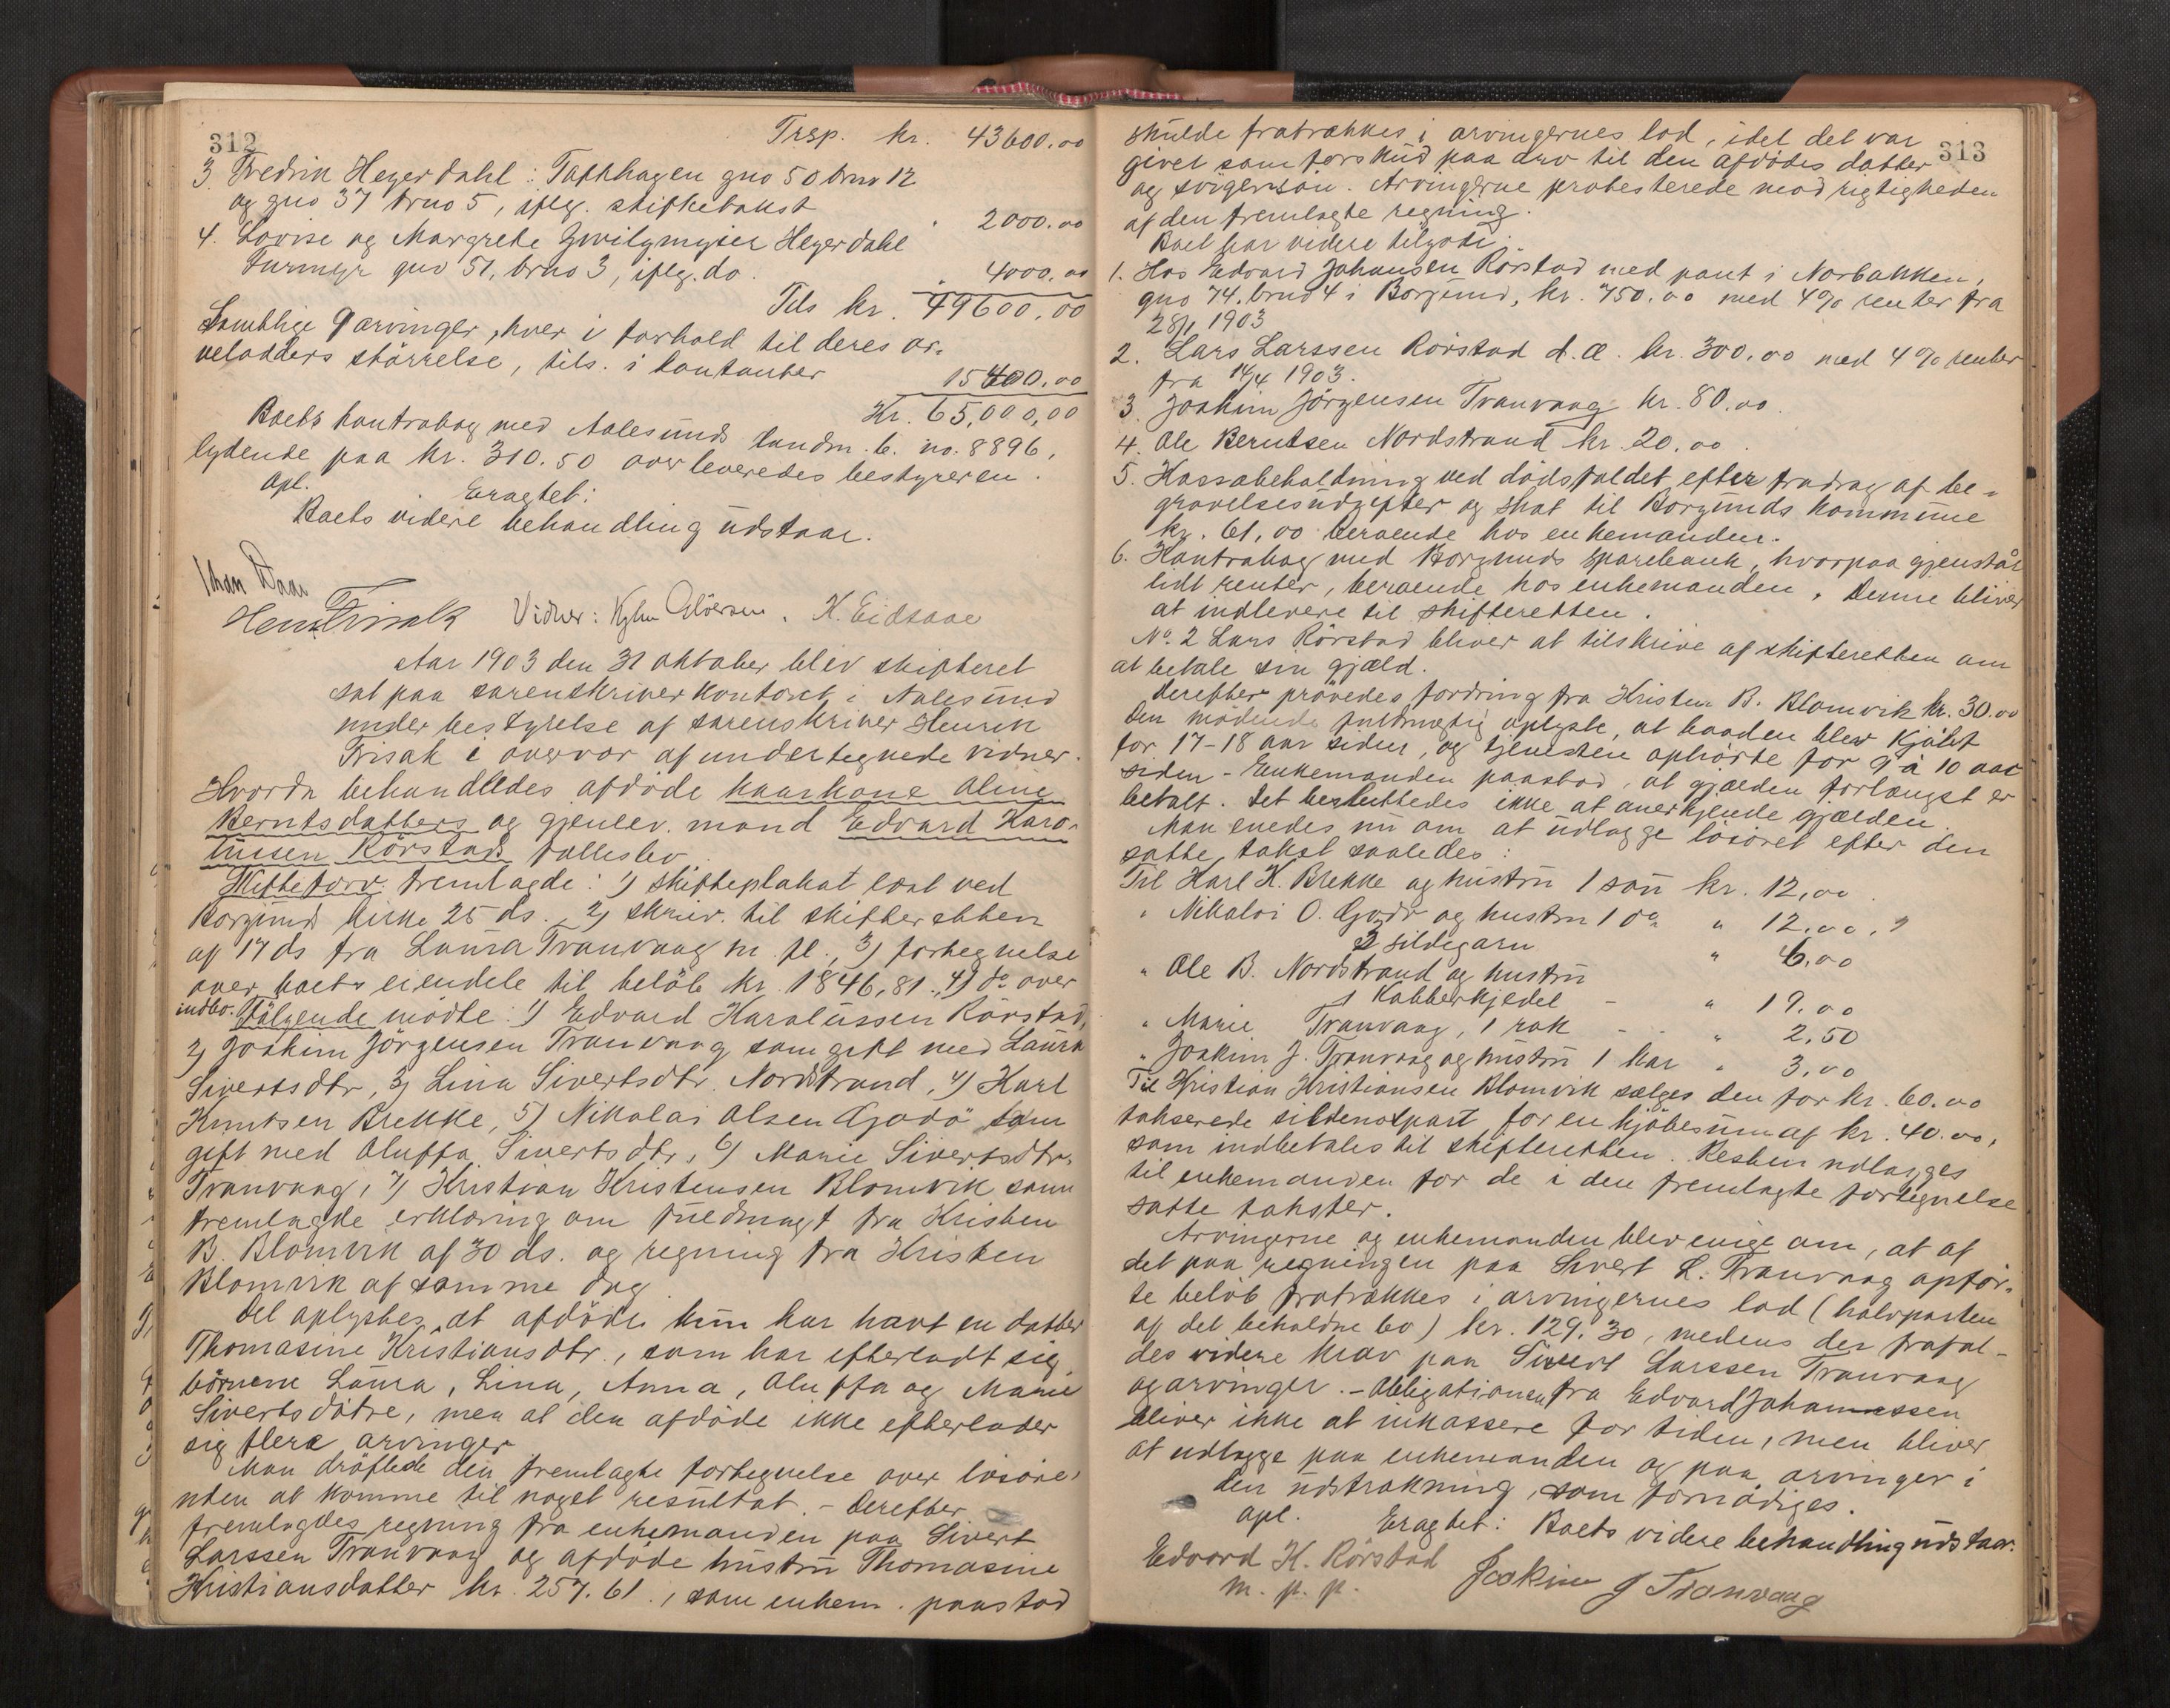 312
Trsp. kr. 43600.00
3. Fredrik Heyerdahl: Tafthagen gno 50 brno 12
og gno 37 brno 5, iflg. skiftetakst " 2000.00
4. Lovise og Margrethe Heyerdahl
gno 51, brno 3, iflg. do. " 4000.00
Tils kr. 49600.00
Samtlige 9 arvinger, hver i forhold til deres ar-
velodders størrelse, tils. i kontanter 15400.00
Kr. 65,000,00
Boets kontrabog med Aalesunds landm. b. no. 8896,
lydende paa kr. 310.50 overleveredes bestyreren.
Opl. Eragtet:
Boets videre behandling udstaar.
Johan Daae
Henr. Frisak Vidner: K. Eidsaae
Aar 1903 den 31 oktober blev skifteret
sat paa sorenskriverkontoret i Aalesund
under bestyrelse af sorenskriver Henrik
Frisak i overvær af undertegnede vidner.
Hvorda behandledes afdøde kaarkone Oline
Berntsdatters og gjenlev. mand Edvard Karo-
liussen Rørstads fællesbo.
Skifteforv. fremlagde: 1) skifteplakat læst ved
Borgund kirke 25 ds., 2) skriv. til skifteretten
af 17 ds fra Laura Tranvaag m. fl., 3) fortegnelse
over boets eiendele til beløb kr. 1846,81., 4) do over
indbo. Følgende mødte: 1) Edvard Karoliussen Rørstad,
2) Joakim Jörgensen Tranvaag som gift med Laura
Sivertsdtr, 3) Lina Sivertsdtr. Nordstrand, 4) Karl
Knutsen Brekke, 5) Nikolai Olsen Godö som
gift med Oluffa Sivertsdtr, 6) Marie Sivertsdtr.
Tranvaag, 7) Kristian Kristensen Blomvik som
fremlagde erklæring om fuldmagt fra Kristen
B. Blomvik af 30 ds. og regning fra Kristen
Blomvik af samme dag.
Det oplystes, at afdöde kun har havt en datter
Thomasine Kristiansdtr., som har efterladt sig
börnene Laura, Lina, Anna, Oluffa og Marie
Sivertsdötre, men at den afdöde ikke efterlader
sig flere arvinger.
Man dröftede den fremlagte fortegnelse over lösöre,
uten at komme til noget resultat. - Derefter
fremlagdes regning fra enkemanden paa Sivert
Larssen Tranvaag og afdöde hustru Thomasine
Kristiansdatter kr. 257.61., som enkem. paastod
313
skulde fratrækkes i arvingernes lod, idet det var
givet som forskud paa arv til den afdödes datter
og svigersön. Arvingerne protesterede mod rigtigheden
af den fremlagte regning.
Boet har videre tilgode:
1. Hos Edvard Johansen Rørstad med pant i Norbakken,
gno 74. brno 4 i Borgund, kr. 750.00 med 4% renter fra
28/1 1903
2. Lars Larssen Rörstad d. æ. kr. 300.00 med 4% renter
fra 14/4 1903.
3. Joakim Jörgensen Tranvaag kr. 80.00.
4. Ole Berntsen Nordstrand kr. 20.00.
5. Kassabeholdning ved dödsfaldet efter fradrag af be-
gravelsesudgifter og skat til Borgunds kommune
kr. 61,00 beroende hos enkemanden.
6. Kontrabog med Borgunds sparebank, hvorpaa gjenstår
lidt renter, beroende hos enkemanden. Denne bliver
at indlevere til skifteretten.
No. 2 Lars Rörstad bliver at tilskrive af skifteretten om
at betale sin gjæld.
Derefter prövedes fordring fra Kristen B. Blomvik kr. 30.00
Den mödende fuldmægtig oplyste, at baaden blev kjöbt
for 17-18 aar siden, og tjenesten ophörte for 9 à 10 aar
siden - Enkemanden paastod, at gjælden forlængst er
betalt. Det besluttedes ikke at anerkjende gjælden.
Man enedes nu om at udlægge lösöret efter den
satte takst saaledes:
Til Karl K. Brekke og hustru 1 sau kr. 12,00.
" Nikolai O. Godö og hustru 1 do " 12.00.
2 sildegarn " 6.00
" Ole B. Nordstrand og hustru
1 Kobberkjedel - " 19.00
" Marie Tranvaag, 1 rok - - " 2.50
" Joakim J. Tranvaag og hustru 1 kar " 3.00
Til Kristian Kristiansen Blomvik sælges den for kr. 60.00
takserede sildenotpart for en kjöbesum af kr. 40.00,
som indbetales til skifteretten. Resten udlægges
til enkemanden for de i den fremlagte fortegnelse
satte takster.
Arvingerne og enkemanden blev enige om, at af
det paa regningen paa Sivert L. Tranvaag opför-
te belöb fratrækkes i arvingernes lod (halvparten
af det beholdne bo) kr. 129.30, medens der frafal-
des videre krav paa Sivert Larssen Tranvaag
og arvinger. - Obligationen fra Edvard Johannessen
bliver ikke at inkassere for tiden, men bliver
at udlægge paa enkemanden og paa arvinger i
den udstrækning, som fornödiges.
Opl. Eragtet: Boets videre behandling udstaar.
Edvard K. Rörstad Joakim J Tranvaag
m. p. p.